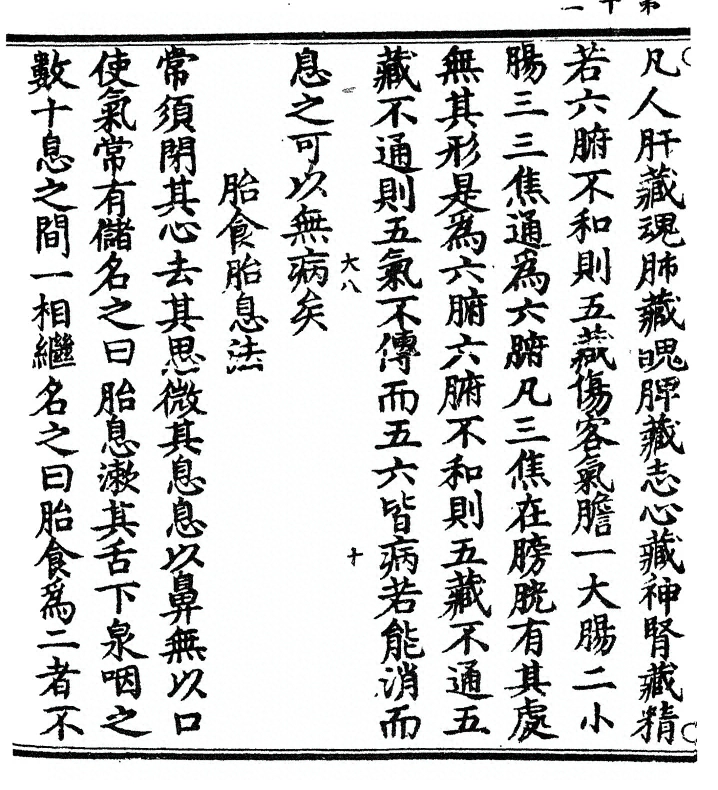 第十一
凡人肝藏魂肺藏魄脾藏志心藏神腎藏精
若六腑不和則五藏傷客氣膽一大腸二小
腸三三焦通為六腑凡三焦在膀胱有其處
無其形是為六腑六腑不和則五藏不通五
藏不通則五氣不傳而五六皆病若能消而
大八
十
息之可以無病矣
胎食胎息法
常須閉其心去其思微其息息以鼻無以口
使氣常有儲名之曰胎息漱其舌下泉咽之
數十息之間一相繼名之曰胎食為二者不